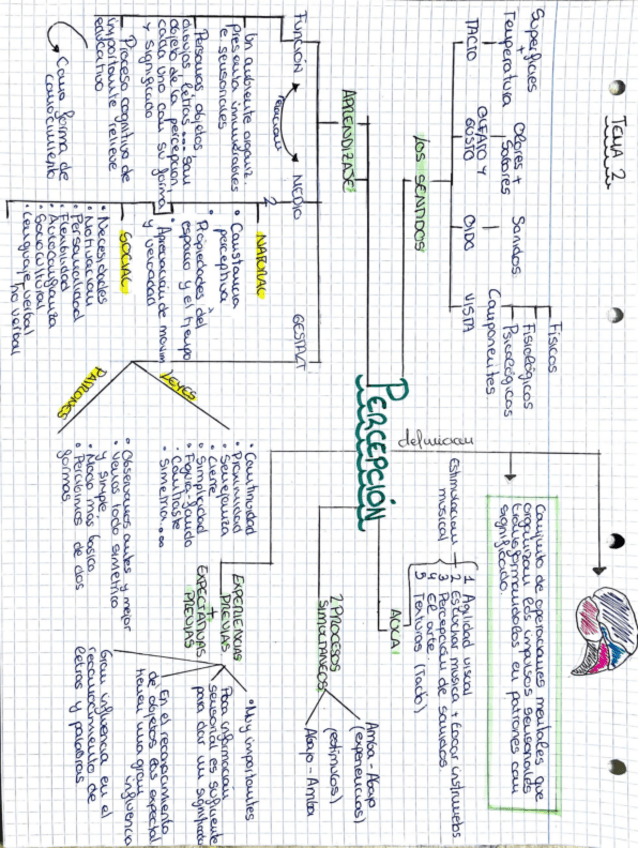 TEMA 2
PERCEPCIÓN
definición
Conjunto de operaciones mentales que
organizan los impulsos sensoriales
transformándolos en patrones con
significado.
LOS SENTIDOS
TACTO
Superficies
+
Temperatura
OLFATO Y
GUSTO
Olores +
Sabores
OIDO
Sonidos
VISTA
Componentes
Físicos
Fisiológicos
Psicológicos
APRENDIZAJE
Función
relación
MEDIO
Un ambiente organiz.
presenta innumerables
e sensoriales
Personas, objetos,
dibujos, letras... son
objeto de la percepción,
cada uno con su forma
y significado
Proceso cognitivo de
importante relieve
educativo
Como forma de
conocimiento
2
NATURAL
• Constancia
perceptiva
• Propiedades del
espacio y el tiempo
• Apreciación de movim
y velocidad
SOCIAL
• Necesidades
• Motivación
• Personalidad
• Flexibilidad
• Autoconfianza
• Sociocultural
• Lenguaje verbal
no verbal
GESTALT
LEYES
• Continuidad
• Proximidad
• Semejanza
• Cierre
• Simplicidad
• Figura-fondo
• Contraste
• Simetría...
PATRONES
• Observamos antes y mejor
• Vemos todo simétrico
y simple.
• Modo más básico
• Percibimos de dos
formas
AUCA
Estimulación
musical
1 Agilidad visual
2 Escuchar música + tocar instrumetos
3 Percepción de sonidos
4 El arte.
5 Texturas (Tacto)
2 PROCESOS
SIMULTANEOS
Arriba - Abajo
(experiencias)
(estímulos)
Abajo - Arriba
EXPERIENCIAS
PREVIAS
+
EXPECTATIVAS
PREVIAS
• Muy importantes
Poca información
sensorial es suficiente
para dar un significado
En el reconocimiento
de objetos las expectat
tienen una gran
influencia
Gran influencia en el
reconocimiento de
letras y palabras